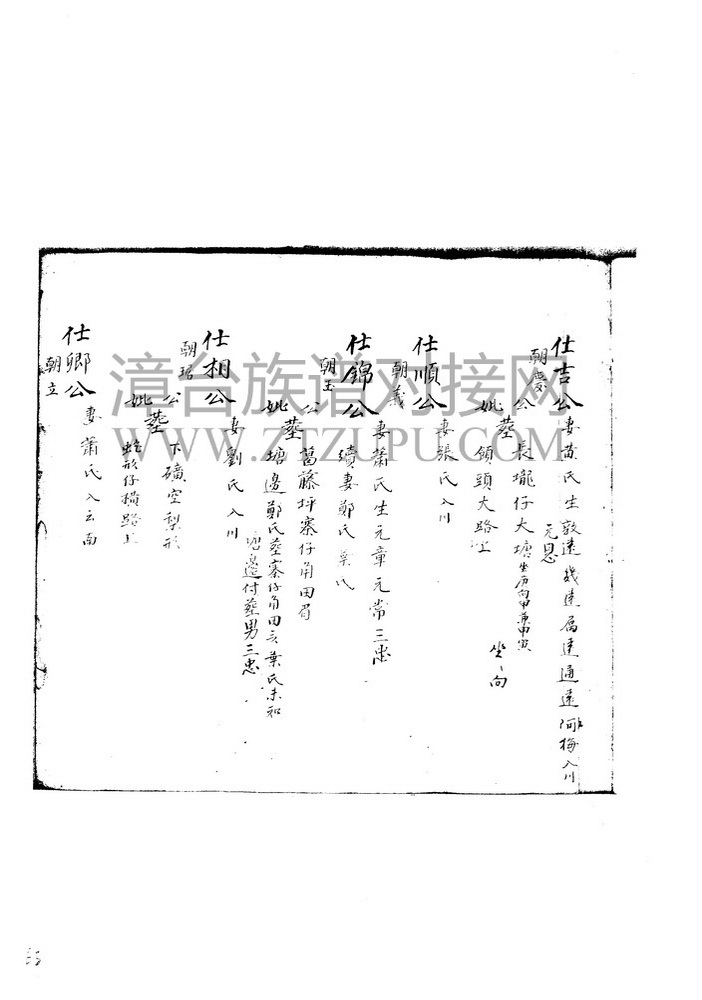 仕吉公 妻黄氏生敦遠 幾遠 属達 通遠 阿梅入川
元恩
朝慶
公 長壠仔大塘坐庚向甲兼申寅
妣塟 領頭大路上 坐、向
仕順公 妻張氏入川
朝義
仕錦公 妻蕭氏生元章元常三忠
朝玉 續妻鄭氏 葉氏
公 葛藤坪寨仔角田唇
妣塟 塘邊鄭氏塟寨仔角田 葉氏未知
塘邊付塟男三忠
仕相公 妻劉氏入川
朝琚
公 下礦空犁形
妣塟 蛇形仔橫路上
仕卿公 妻蕭氏入云南
朝立
漳台族谱对接网
WWW.ZTZUPU.COM